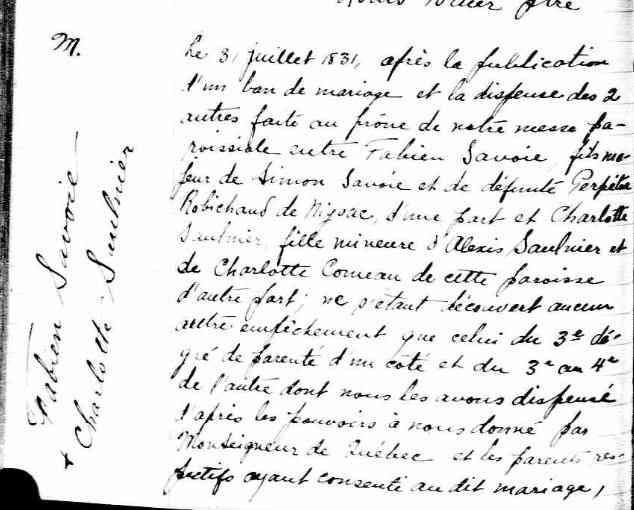 M.
Fabien Savoie
+ Charlotte Saulnier
Le 31 juillet 1831, après la publication
d'un ban de mariage et la dispense des 2
autres faite au prône de notre messe pa-
roissiale entre Fabien Savoie, fils ma-
jeur de Simon Savoie et de défunte Perpétue
Robichaud de Nigaac, d'une part et Charlotte
Saulnier, fille mineure d'Alexis Saulnier et
de Charlotte Comeau de cette paroisse
d'autre part; ne s'étant découvert aucun
autre empêchement que celui du 3e dé-
gré de parenté d'un côté et du 3e au 4e
de l'autre dont nous les avons dispensé
d'après les pouvoirs à nous donné par
Monseigneur de Québec et les parents res-
pectifs ayant consenti au dit mariage,